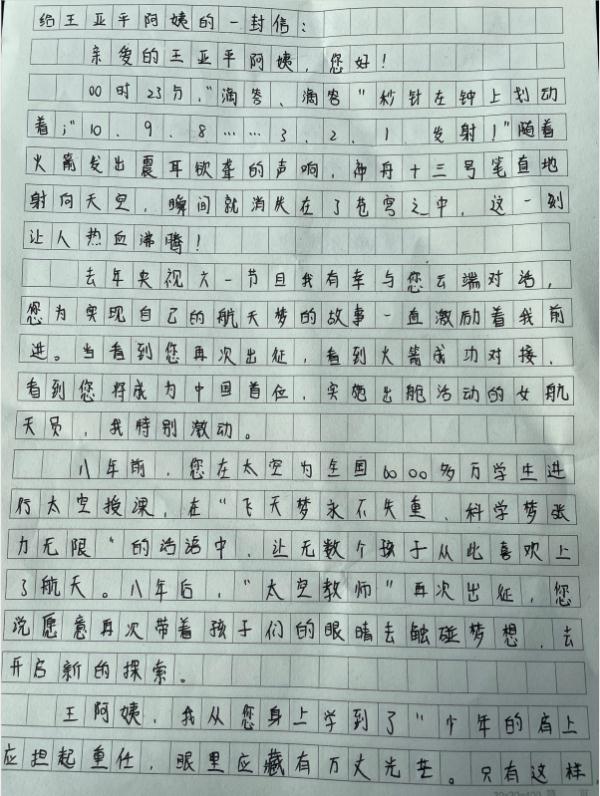 给王亚平阿姨的一封信：
亲爱的王亚平阿姨，您好！
00时23分，“滴答、滴答”秒针在钟上划动
着；“10、9、8……3、2、1、发射！”随着
火箭发出震耳欲聋的声响，神舟十三号笔直地
射向天空，瞬间就消失在了苍穹之中，这一刻
让人热血沸腾！
去年央视六一节目我有幸与您云端对话，
您为实现自己的航天梦的故事一直激励着我前
进。当看到您再次出征，看到火箭成功对接，
看到您将成为中国首位，实施出舱活动的女航
天员，我特别激动。
八年前，您在太空为全国6000多万学生进
行太空授课，在“飞天梦永不失重，科学梦张
力无限”的话语中，让无数个孩子从此喜欢上
了航天。八年后，“太空教师”再次出征，您
说愿意再次带着孩子们的眼睛去触碰梦想，去
开启新的探索。
王阿姨，我从您身上学到了“少年的肩上
应担起重任，眼里应藏有万丈光芒。只有这样